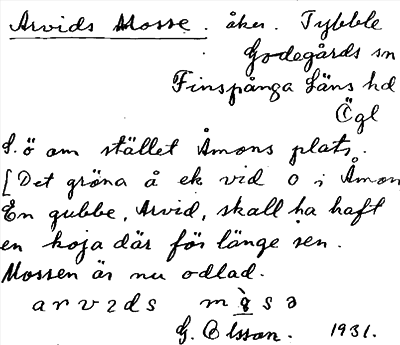 Arvids Mosse. åker. Tybble
Godegårds sn
Finspånga Läns hd
Ögl
S. ö om stället Åmons plats.
[Det gröna å ek vid o i Åmon
En gubbe, Arvid, skall ha haft
en koja där för länge sen.
Mossen är nu odlad.
arvɩds mɷ̀sə
G. Olsson. 1931.